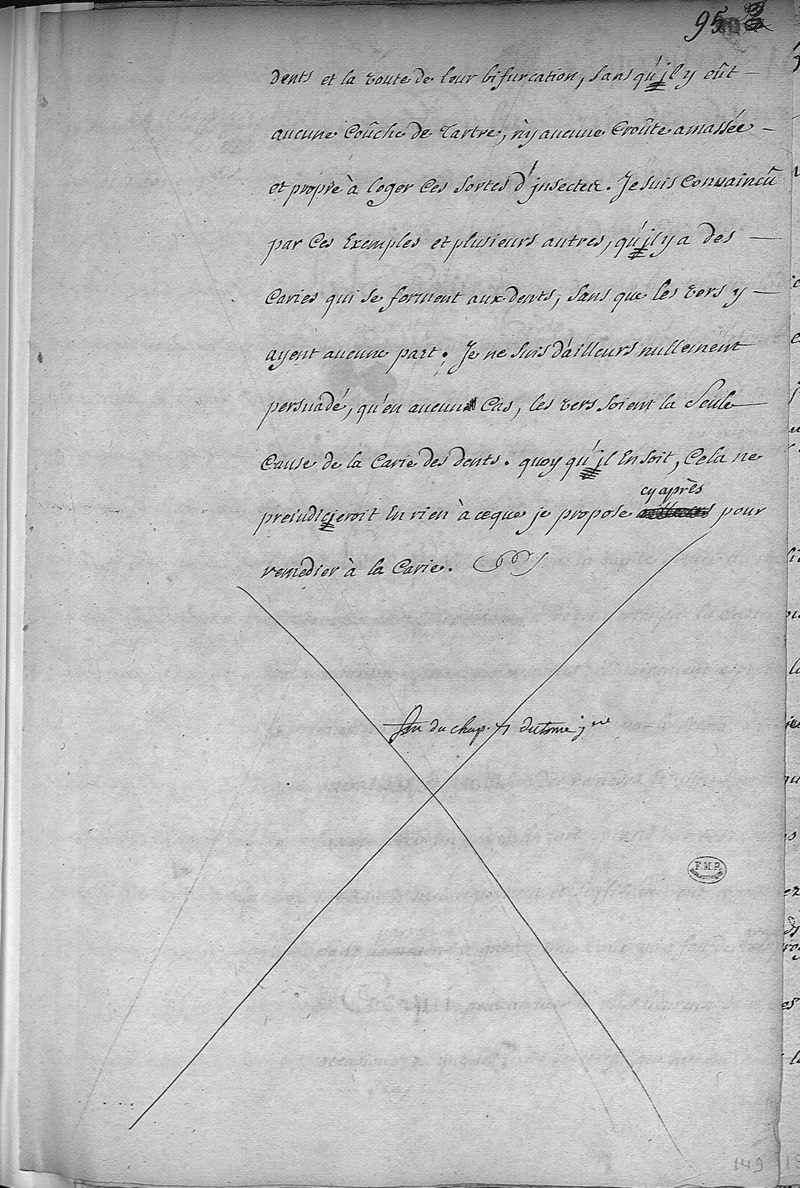 95
dents et la voute de leur bifurcation, sans qu'il y eût —
aucune Coûche de Tartre, n'y aucune Croûte amassée —
et propre à loger Ces sortes d'jnsectes. Je suis Convaincû
par Ces Exemples et plusieurs autres, qu'il y a des —
Caries qui se forment aux dents, sans que les vers y —
ayent aucune part; Je ne suis d'ailleurs nullement
persuadé, qu'en aucun Cas, les vers soient la Seule
Cause de la Carie des dents. quoy qu'il En soit, Cela ne
cy après
prejudicieroit En rien à ceque je propose pour
remedier à la Carie.
fin du chap. 7 du tome j.er
F.M.P.
149